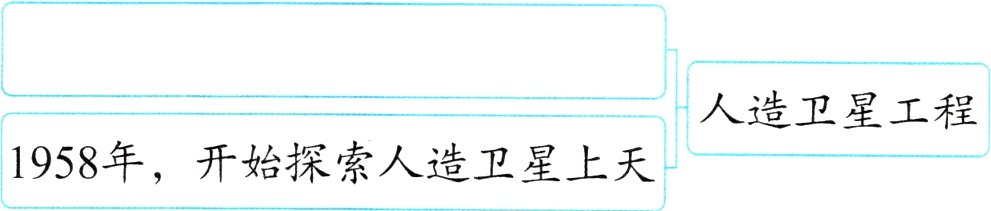 人造卫星工程
1958年，开始探索人造卫星上天